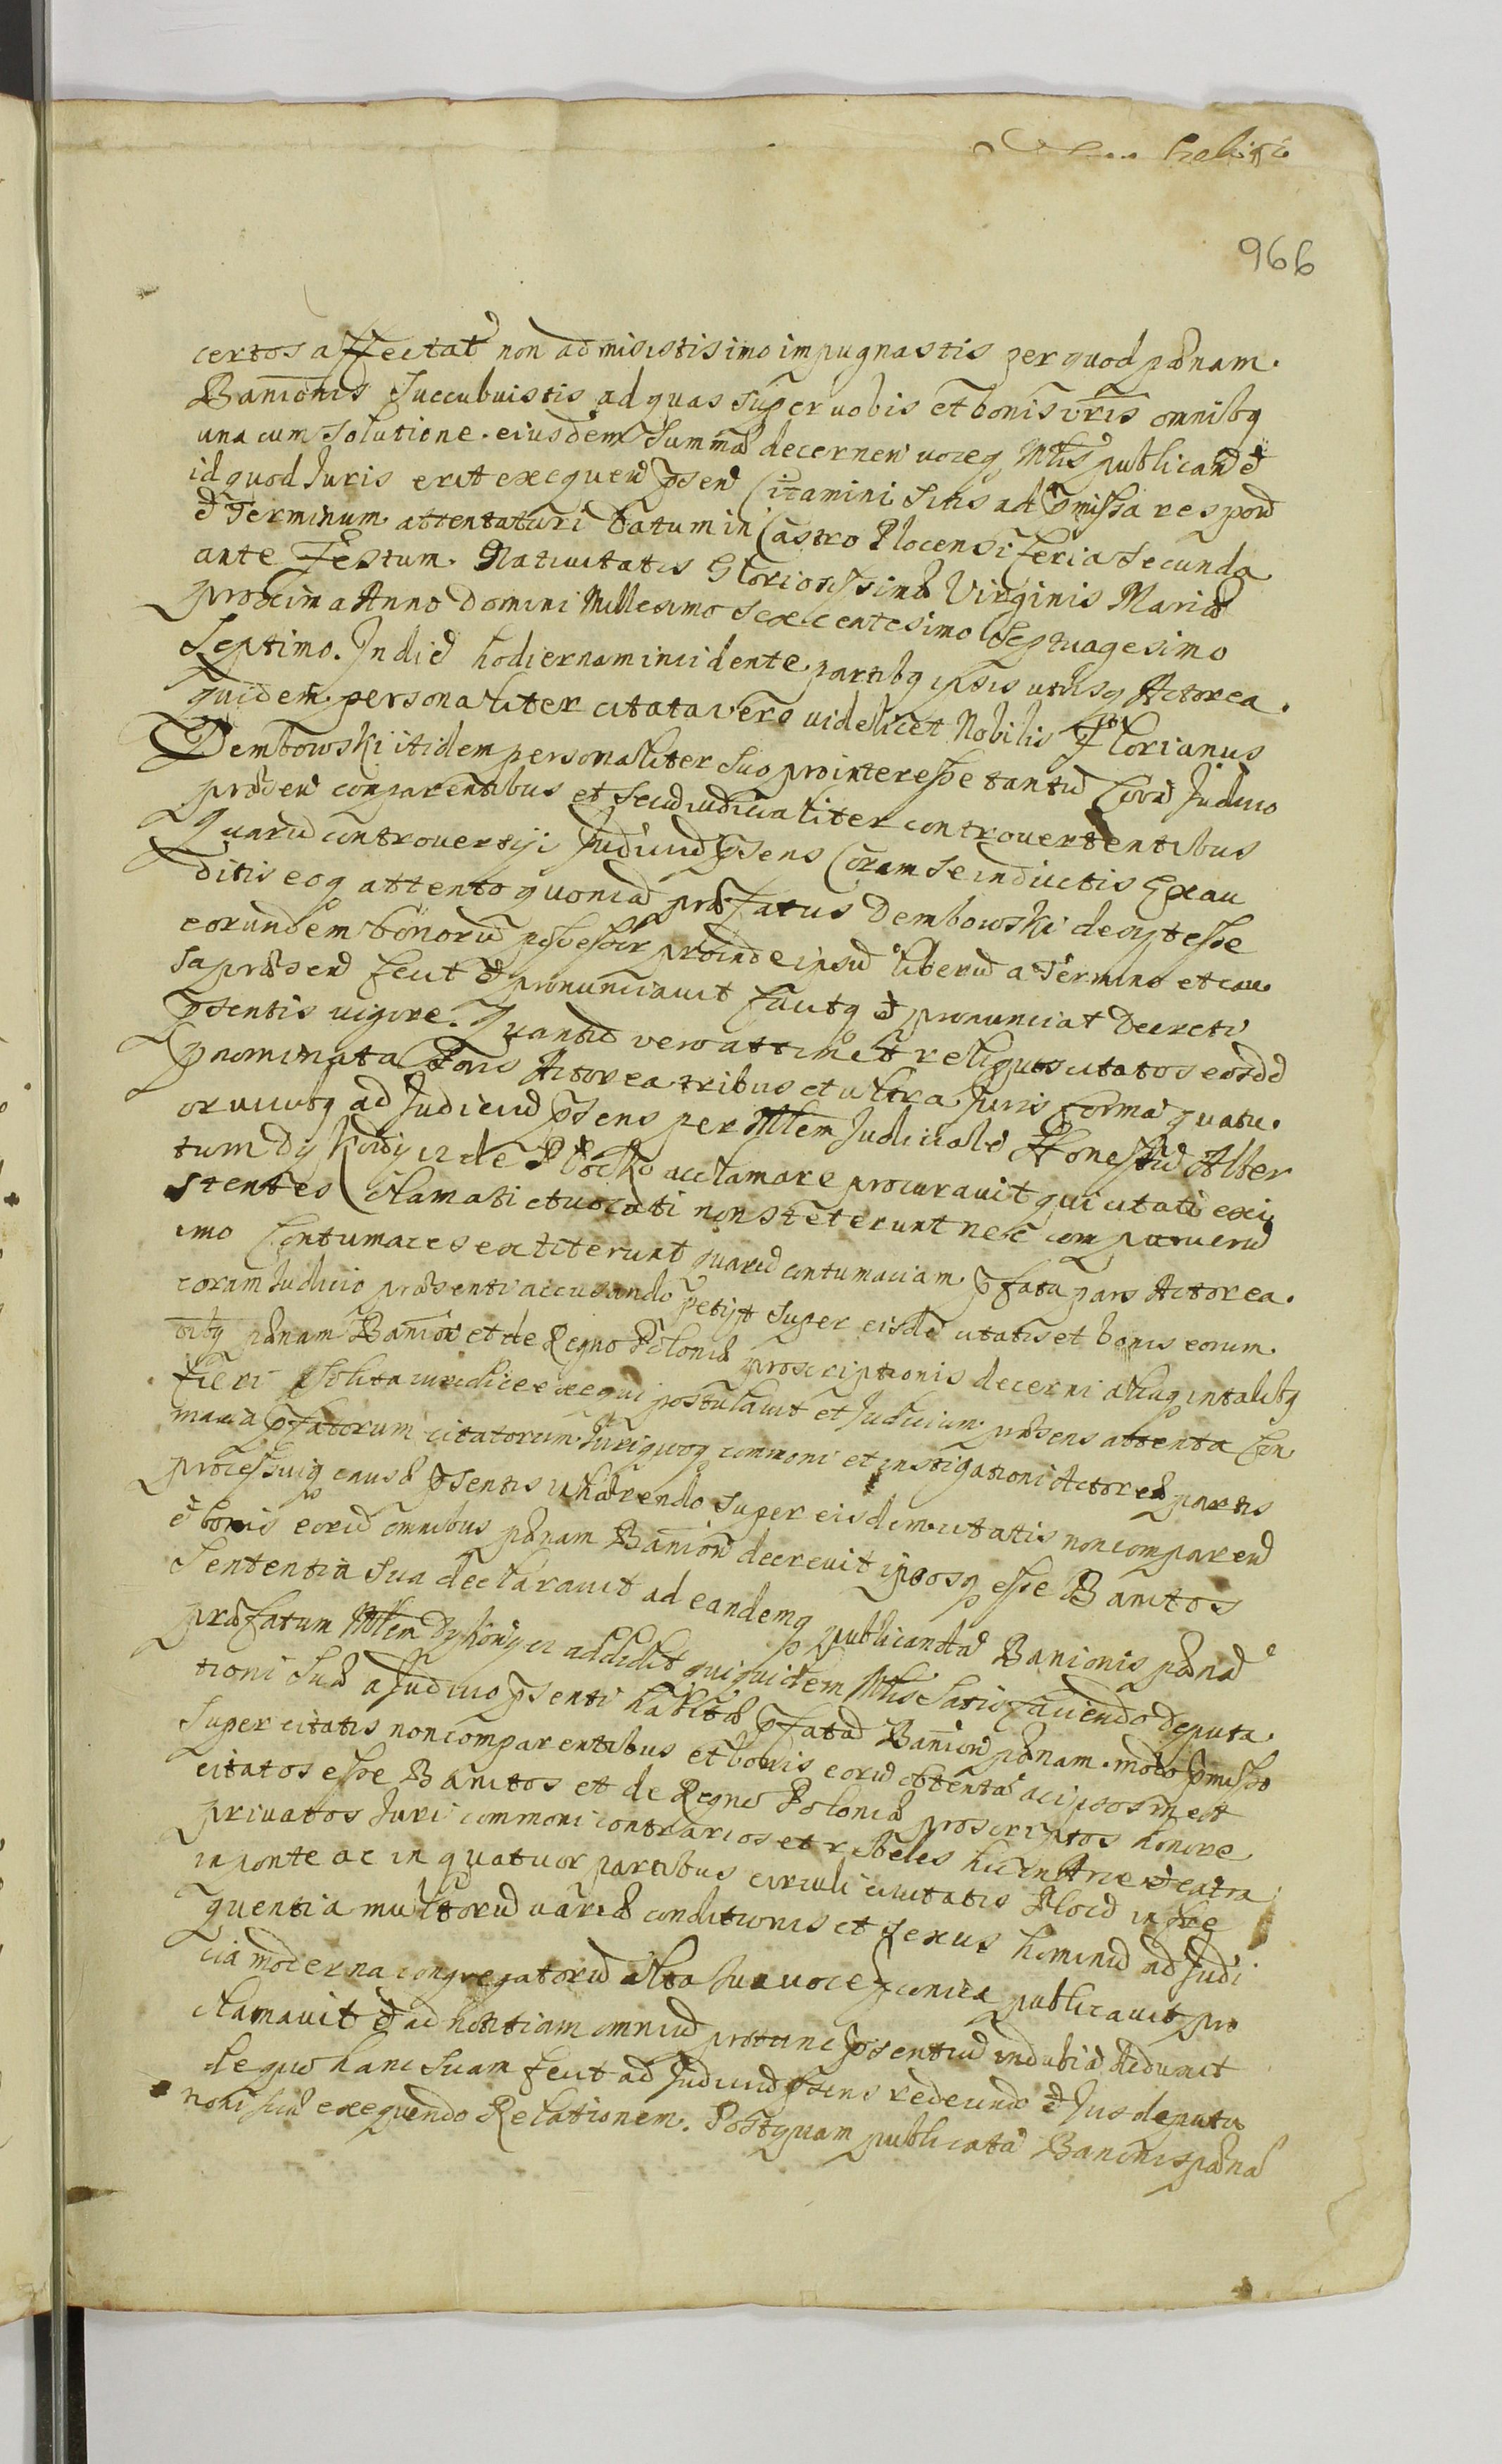 966
certos affectat non admisistis imo impugnastis per quod pœnam
Banionis succubuistis ad quas super vobis et bonis vris omnibq
una cum solutione eiusdem summæ decernen voceq Mlis publicand et
id quod Juris erit exequend psen Citamini sitis ad pmissa respond
et Terminum attentaturi Datum in Castro Plocensi feria secunda
ante Festum Nativitatis Gloriosissimæ Virginis Mariæ
proxima Anno Domini Millesimo Sexcentesimo Septuagesimo
Septimo. In die hodiernam incidente partibq ipsis utrisq Actorea
quidem personaliter citata vero videlicet Nobilis Florianus
Dembowski itidem personaliter suo pro interesse tantu Cora Judicio
præsen comparentibus et secu iudicialiter controvertentibus
Quaru controversijs Judiciu psens Coram se inductis Exau
ditis eoq attento quonia præfatus Dembowski desijt esse
eorundem bonoru possessor proinde ipsu liberu a Termino et cau
sa præsend fecit et pronunciavit facitq et pronunciat Decreti
psentis vigore. Quantu vero attinet reliquos citatos eosde
pnominata Pars Actorea tribus et ultra Juris forma quatu
or vicibq ad Judiciu psens per Mlem Judiciale Honestu Alber
tum de Plocko acclamare procuravit qui citati exi
stentes Clamati et vocati non steterunt nec comparueru
imo Contumaces extiterunt quaru contumaciam pfata pars Actorea
coram Judicio præsenti accusando petijt super eisde citatis et bonis eorum
oibq pœnam Banio et de Regno Poloniæ proscriptionis decerni aliaq in talibq
fieri solita iuridice exequi postulavit et Judicium præsens attenta Con
macia pfatorum citatorum Juriquoq communi et instigationi Actoreæ partis
processuiq causæ psentis inhærendo super eisdem citatis non comparend
et bonis eoru omnibus pœnam Banion decrevit ipsosq esse Banitos
Sententia sua declaravit ad eandemq publicanda Banionis pœna
præfatum Mlem addidit qui quidem Mlis satisfaciendo deputa
tioni suæ a Judicio psenti habitæ pfata Banion pœnam modo pmisso
super citatis non comparentibus et bonis eoru obtenta ac ipsosmet
citatos esse Banitos et de Regno Poloniæ proscriptos honore
privatos Juri communi contrarios et rebeles hic in Arce et extra
in ponte ac in quatuor partibus circuli civitatis Ploce in fre
quentia multoru variæ conditionis et sexus hominu ad Judi
cia moderna congregatoru alta sua voce publicavit pro
clamavit et ad notitiam omniu protunc psentiu indubia deduxit
de quo hanc suam fecit ad Judiciu psens redeundo et Jus deputa
tioni suæ exequendo Relationem. Postquam publicata Banionis pœna